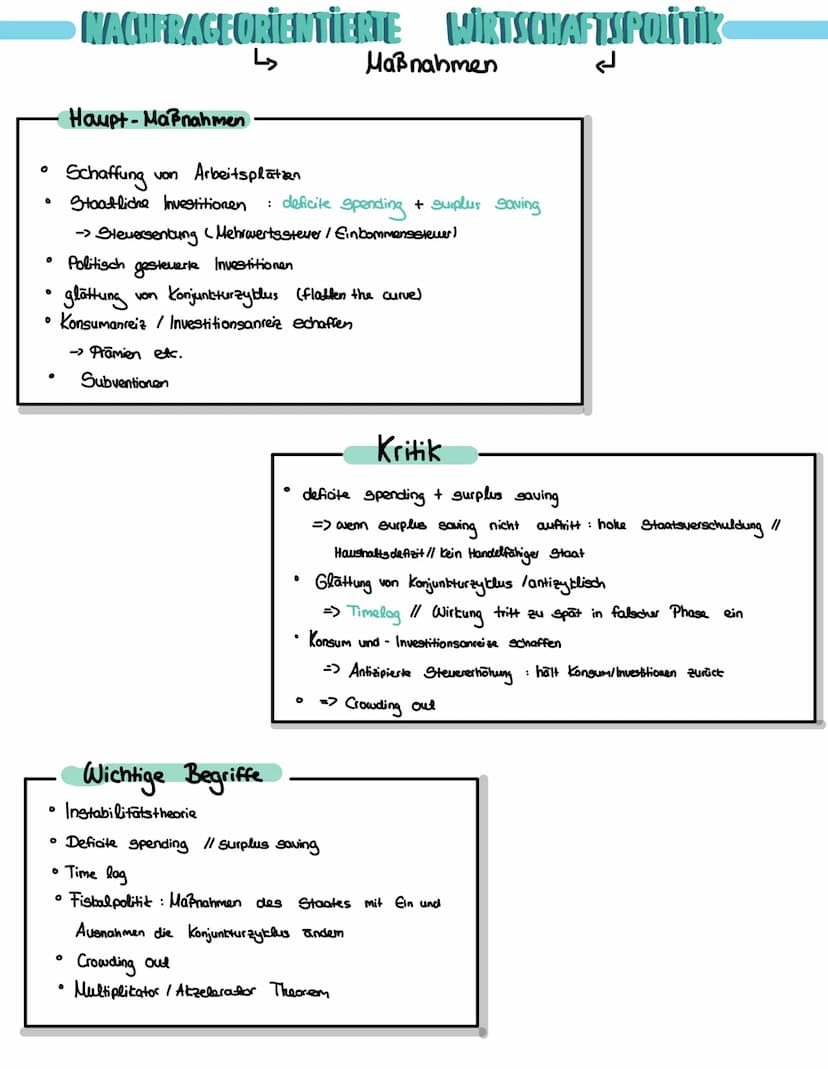 NACHFRAGEORIENTIERTE WIRTSCHAFTSPOLITIK
↳ Maßnahmen ↲
Haupt-Maßnahmen
• Schaffung von Arbeitsplätzen
• Staatliche Investitionen : deficite spending + surplus saving
-> Steuersenkung (Mehrwertssteuer / Einkommenssteuer)
• Politisch gesteuerte Investitionen
• glättung von Konjunkturzyklus (flatten the curve)
• Konsumanreiz / Investitionsanreiz schaffen
-> Prämien etc.
• Subventionen
Kritik
• deficite spending + surplus saving
=> wenn surplus saving nicht auftritt : hohe Staatsverschuldung //
Haushaltsdefizit // kein Handelfähiger Staat
• Glättung von Konjunkturzyklus /antizyklisch
=> Timelag // Wirkung tritt zu spät in falscher Phase ein
• Konsum und - Investitionsanreize schaffen
=> Antizipierte Steuererhöhung : hält Konsum/Investitionen zurück
• => Crowding out
Wichtige Begriffe
• Instabilitätstheorie
• Deficite spending // surplus saving
• Time lag
• Fiskalpolitik : Maßnahmen des Staates mit Ein und
Ausnahmen die Konjunkturzyklus ändern
• Crowding out
• Multiplikator / Akzelarador Theorem